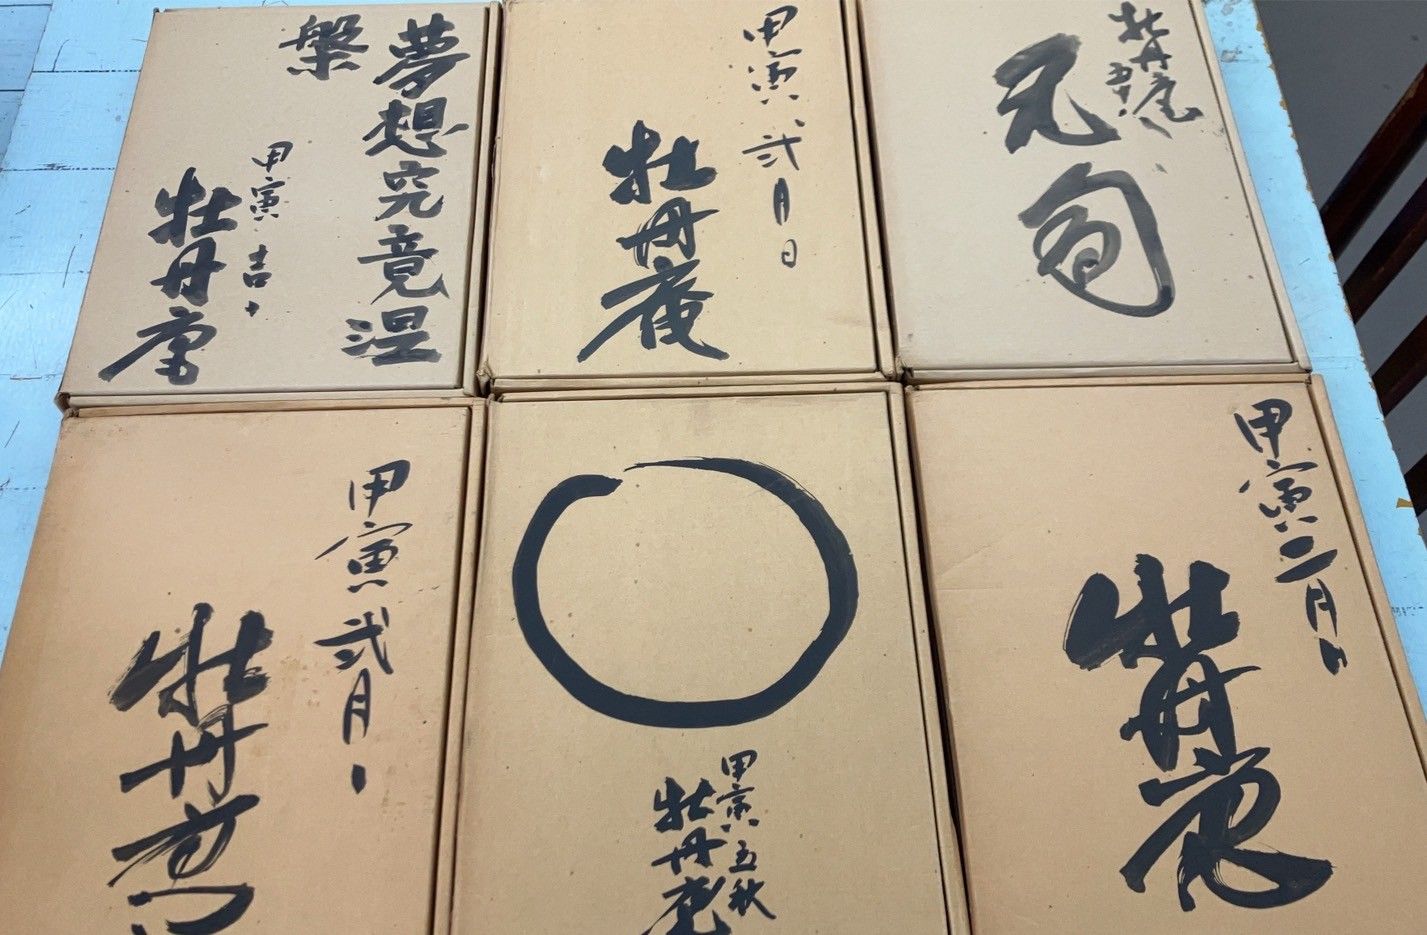 夢想究竟涅
槃
甲寅 吉日
牡丹庵
甲寅 弍月 日
牡丹庵
牡丹庵
甲寅弍月
牡丹庵
甲寅 五秋
牡丹庵
甲寅二月日
牡丹庵